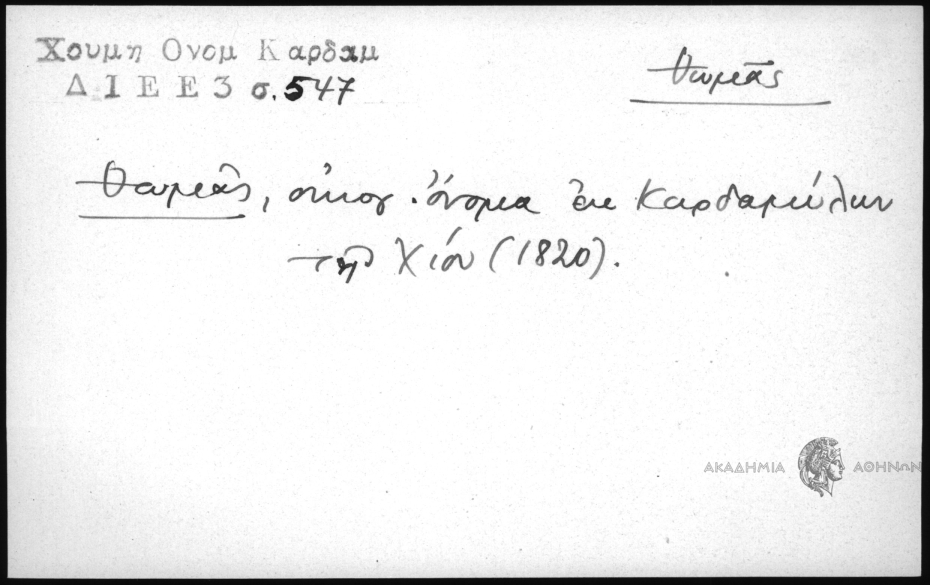 Χουμη Ονομ Καρδαμ
Δ Ι Ε Ε 3 σ. 547
Θωμᾶς
Θωμᾶς, οἰκογ. ὄνομα ἐκ Καρδαμύλων
τῆς Χίου (1820).
ΑΚΑΔΗΜΙΑ ΑΘΗΝΩΝ